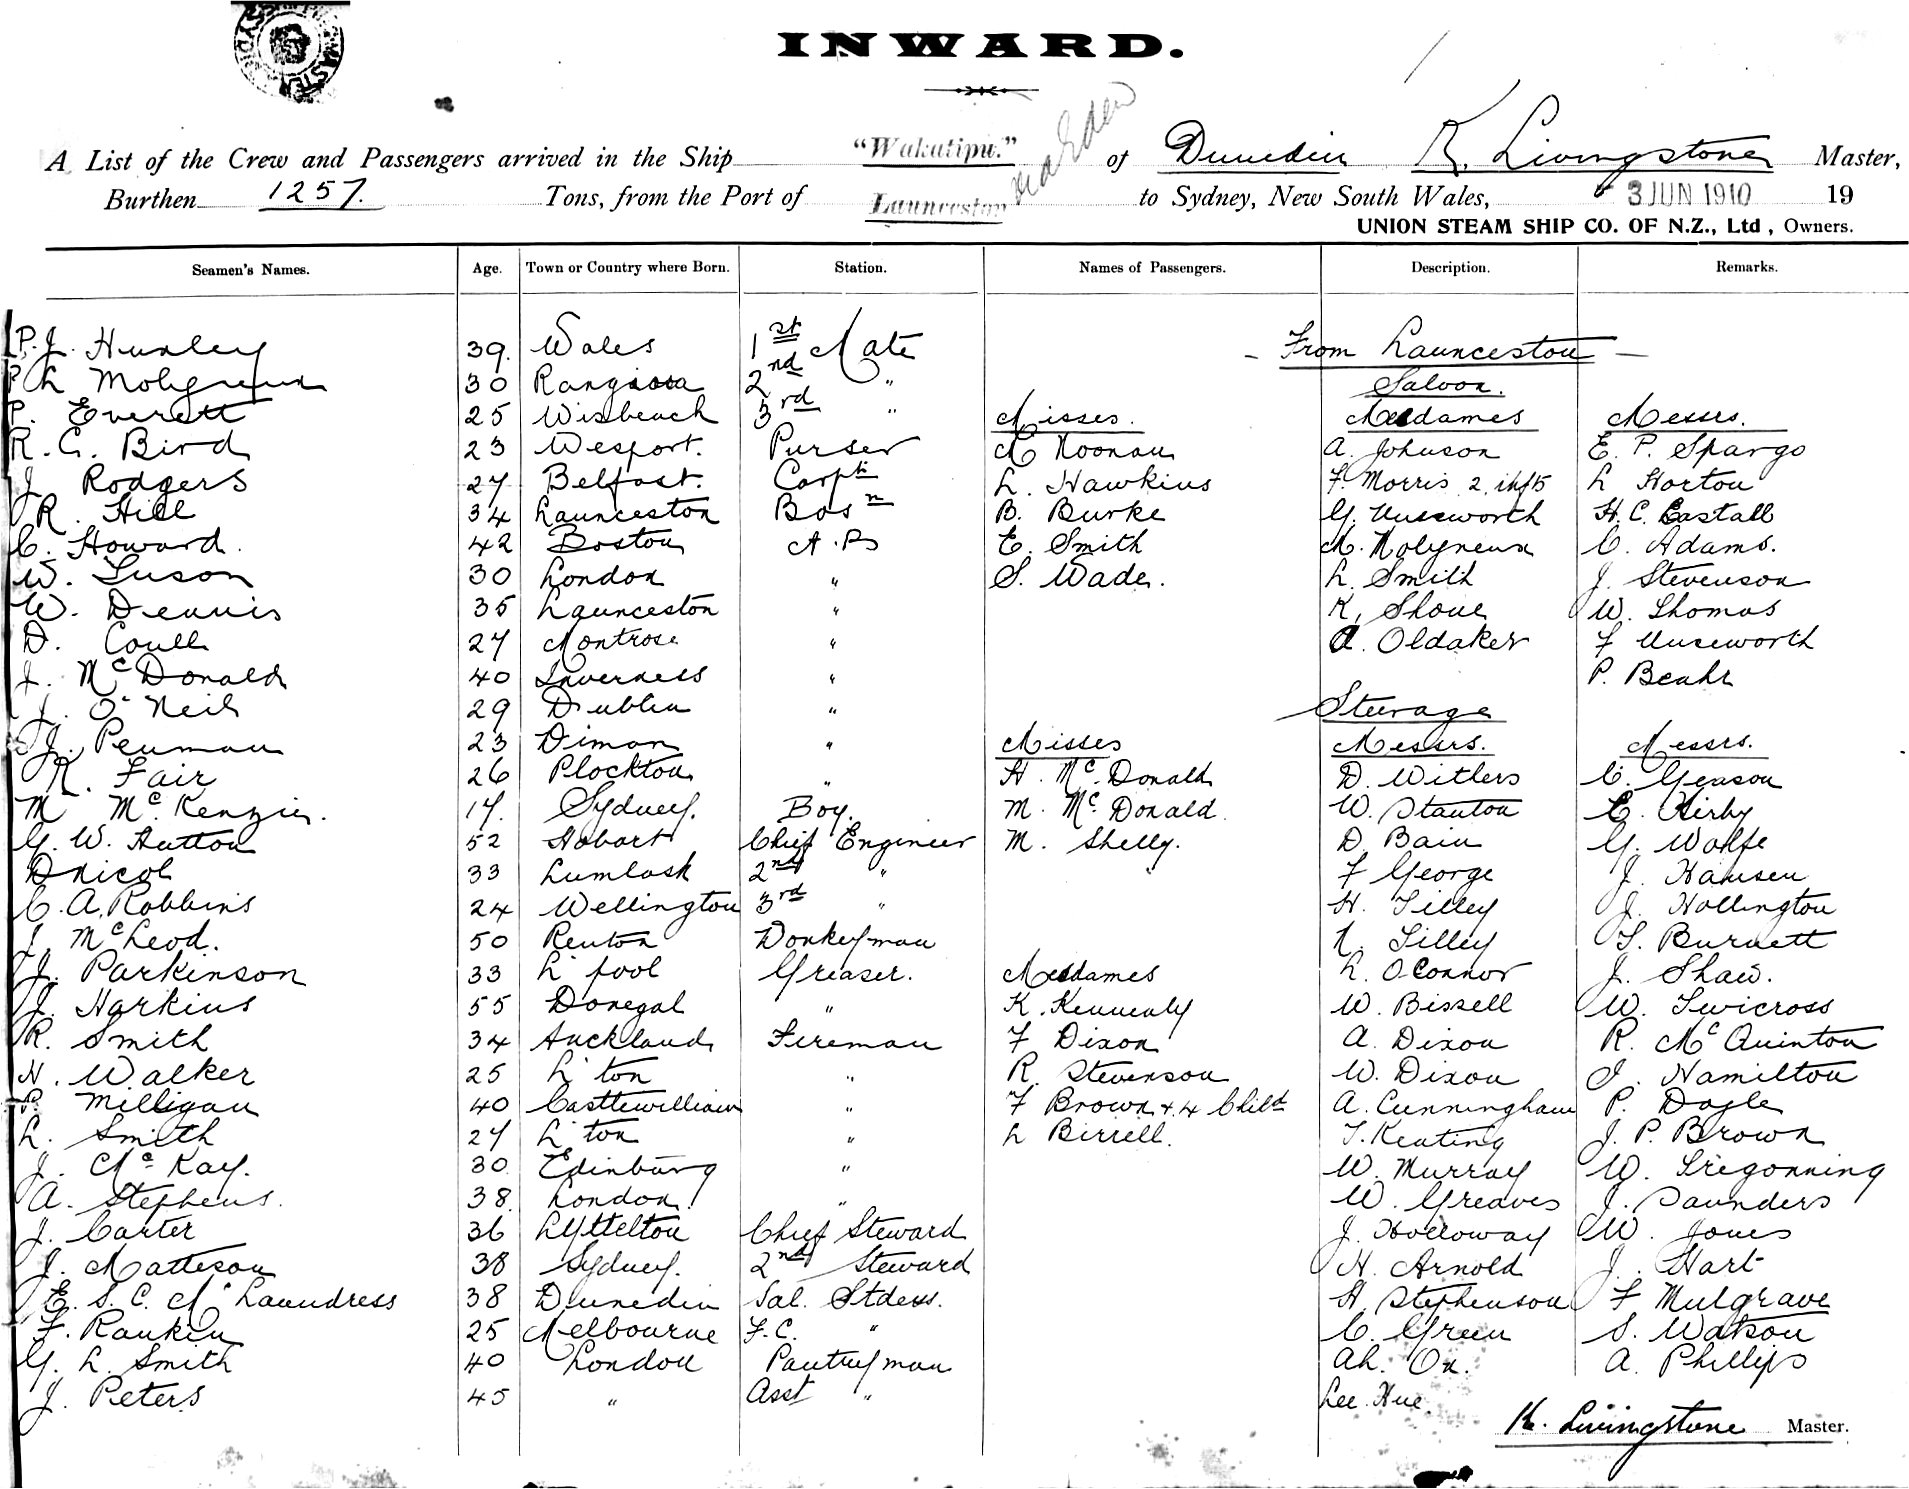 INWARD.
A List of the Crew and Passengers arrived in the Ship "Wakatipu." of Dunedin K. Livingstone Master,
Burthen 1257. Tons, from the Port of Launceston to Sydney, New South Wales, 3 JUN 1910 19
UNION STEAM SHIP CO. OF N.Z., Ltd, Owners.
Seamen's Names. Age. Town or Country where Born. Station. Names of Passengers. Description. Remarks.
P. J. Hunley 39. Wales 1st Mate From Launceston
30 Rangiora 2nd " Saloon.
P. Everett 25 Wisbeach 3rd " Misses. Mesdames Messrs.
R. G. Bird 23 Wesport. Purser M Noonan A. Johnson E. P. Spargo
J Rodgers 27 Belfast. Carptr L. Hawkins F Morris 2 infts L Horton
R. Hill 34 Launceston Bosn B. Burke G. Unsworth H. C. Eastall
C. Howard. 42 Boston A.B E. Smith M. Molyneux C. Adams.
W. Tuson 30 London " S. Wade. L. Smith J. Stevenson
W. Dennis 35 Launceston " K. Shoue W. Thomas
D. Coull 27 Montrose " A. Oldaker F Unseworth
J. McDonald 40 Inverness " P. Beahr
J. O'Neil 29 Dublin " Steerage
J. Penman 23 " Misses Messrs. Messrs.
R. Fair 26 Plockton " H. McDonald D. Withers C. Gleason
M McKenzie. 17. Sydney. Boy. M. McDonald. W. Stanton E. Kirby
G. W. Hutton 52 Hobart Chief Engineer M. Shelly. D. Bain G. Wolfe
D Nicol 33 2nd " F George J. Hansen
C. A. Robbins 24 Wellington 3rd " H. Tilley J. Hollington
J. McLeod. 50 Renton Donkeyman N. Tilley T. Burnett
J. Parkinson 33 L'pool Greaser. Mesdames L. O'Connor J. Shaw.
J. Harkins 55 Donegal " K. Kennealy W. Bissell W. Twicross
R. Smith 34 Auckland Fireman F Dixon A. Dixon R. McQuinton
H. Walker 25 L'ton " R. Stevenson W. Dixon J. Hamilton
P. Milligan 40 Castlewilliam " F Brown & 4 Child A. Cunningham P. Doyle
L. Smith 27 L'ton " L Birrell. T. Keating J. P. Brown
J. McKay. 30 Edinburg " W. Murray W. Tregonning
A. Stephens. 38 London " W. Greaves J. Saunders
J. Carter 36 Lyttelton Chief Steward J. Holloway W. Jones
J. Matteson 38 Sydney. 2nd Steward H. Arnold J. Hart
E. S. C. McLaundress 38 Dunedin Sal. Stdess. H Stephenson F Mulgrave
F. Rankin 25 Melbourne F.C. " C. Green S. Watson
G. L. Smith 40 London Pantryman Ah. On. A. Phillips
J. Peters 45 " Asst " Lee Hue.
K. Livingstone Master.